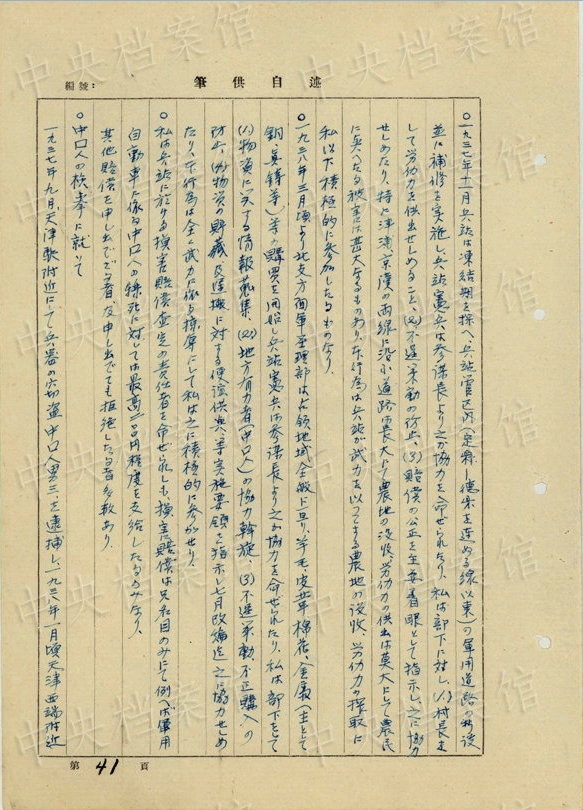 編號:
筆供自述
○一九三七年十一月兵站は凍結期を控へ、兵站管区内(定県—德県を連ねる線以東)の軍用道路の新設
並に補修を実施し兵站憲兵は参謀長より之が協力を命ぜられたり、私は部下に対し、(1)村長を
して労力を供出せしめること、(2)不逞策動の防止、(3)賠償の公正を主要着眼として指示し、之に協力
せしめたり、特に津浦京漢の両線に沿ふ道路は長大にして農地の没收、労力の供出は莫大にして農民
に与へたる被害は甚大なるものあり、本行為は兵站が武力を以つてする農地の没收、労力の搾取に
私以下積極的に参加したるものなり、
○一九三八年三月頃より北支方面軍経理部は占領地域全般に亘り、羊毛、皮革、棉花、金義(主として
銅、真鍮等)等の購買を開始し兵站憲兵は参謀長より之が協力を命ぜられたり、私は部下をして
(1)物資に関する情報蒐集、(2)地方有力者(中口人)の協力斡旋、(3)不逞策動、不正購入の
防止、(4)物資の貯蔵及運搬に対する便宜供与、等実施要領を指示し七月改編迄之に協力せしめ
たり、本行為は全く武力に依る掠奪にして私は之に積極的に参加せり、
○私は兵站に於ける損害賠償査定の責任者を命ぜられしも、損害賠償は只名目のみにて例へば軍用
自動車に依る中口人の轢死に対しては最高二百円程度を支給したるのみなり、
其他賠償を申し出でざる者、及申し出でても拒絶したる者多数あり、
○中口人の検挙に就いて
一九三七年九月、天津駅附近にて兵器の窃盗中口人男三、を逮捕し、一九三八年一月頃天津西端附近
第41頁
中央档案馆